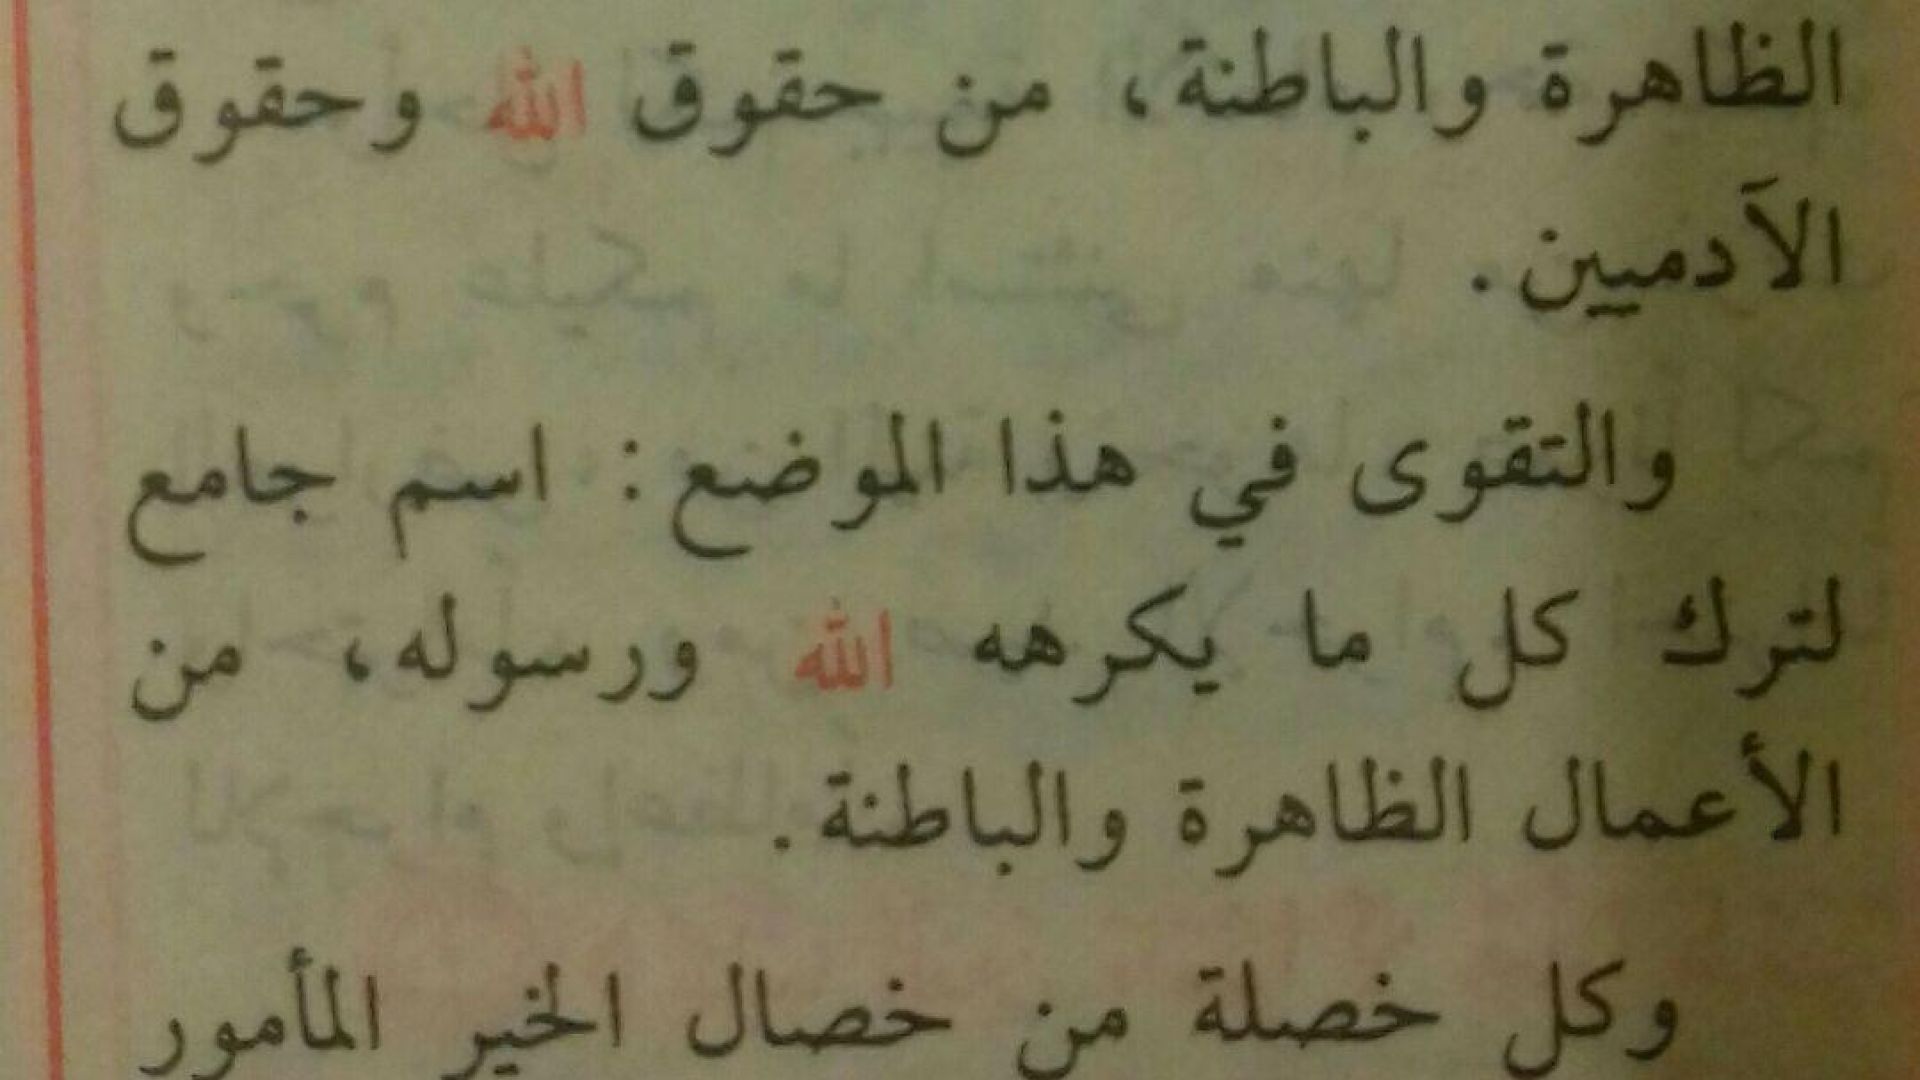 الظاهرة والباطنة، من حقوق الله وحقوق
الآدميين.
والتقوى في هذا الموضع: اسم جامع
لترك كل ما يكرهه الله ورسوله، من
الأعمال الظاهرة والباطنة.
وكل خصلة من خصال الخير المأمور